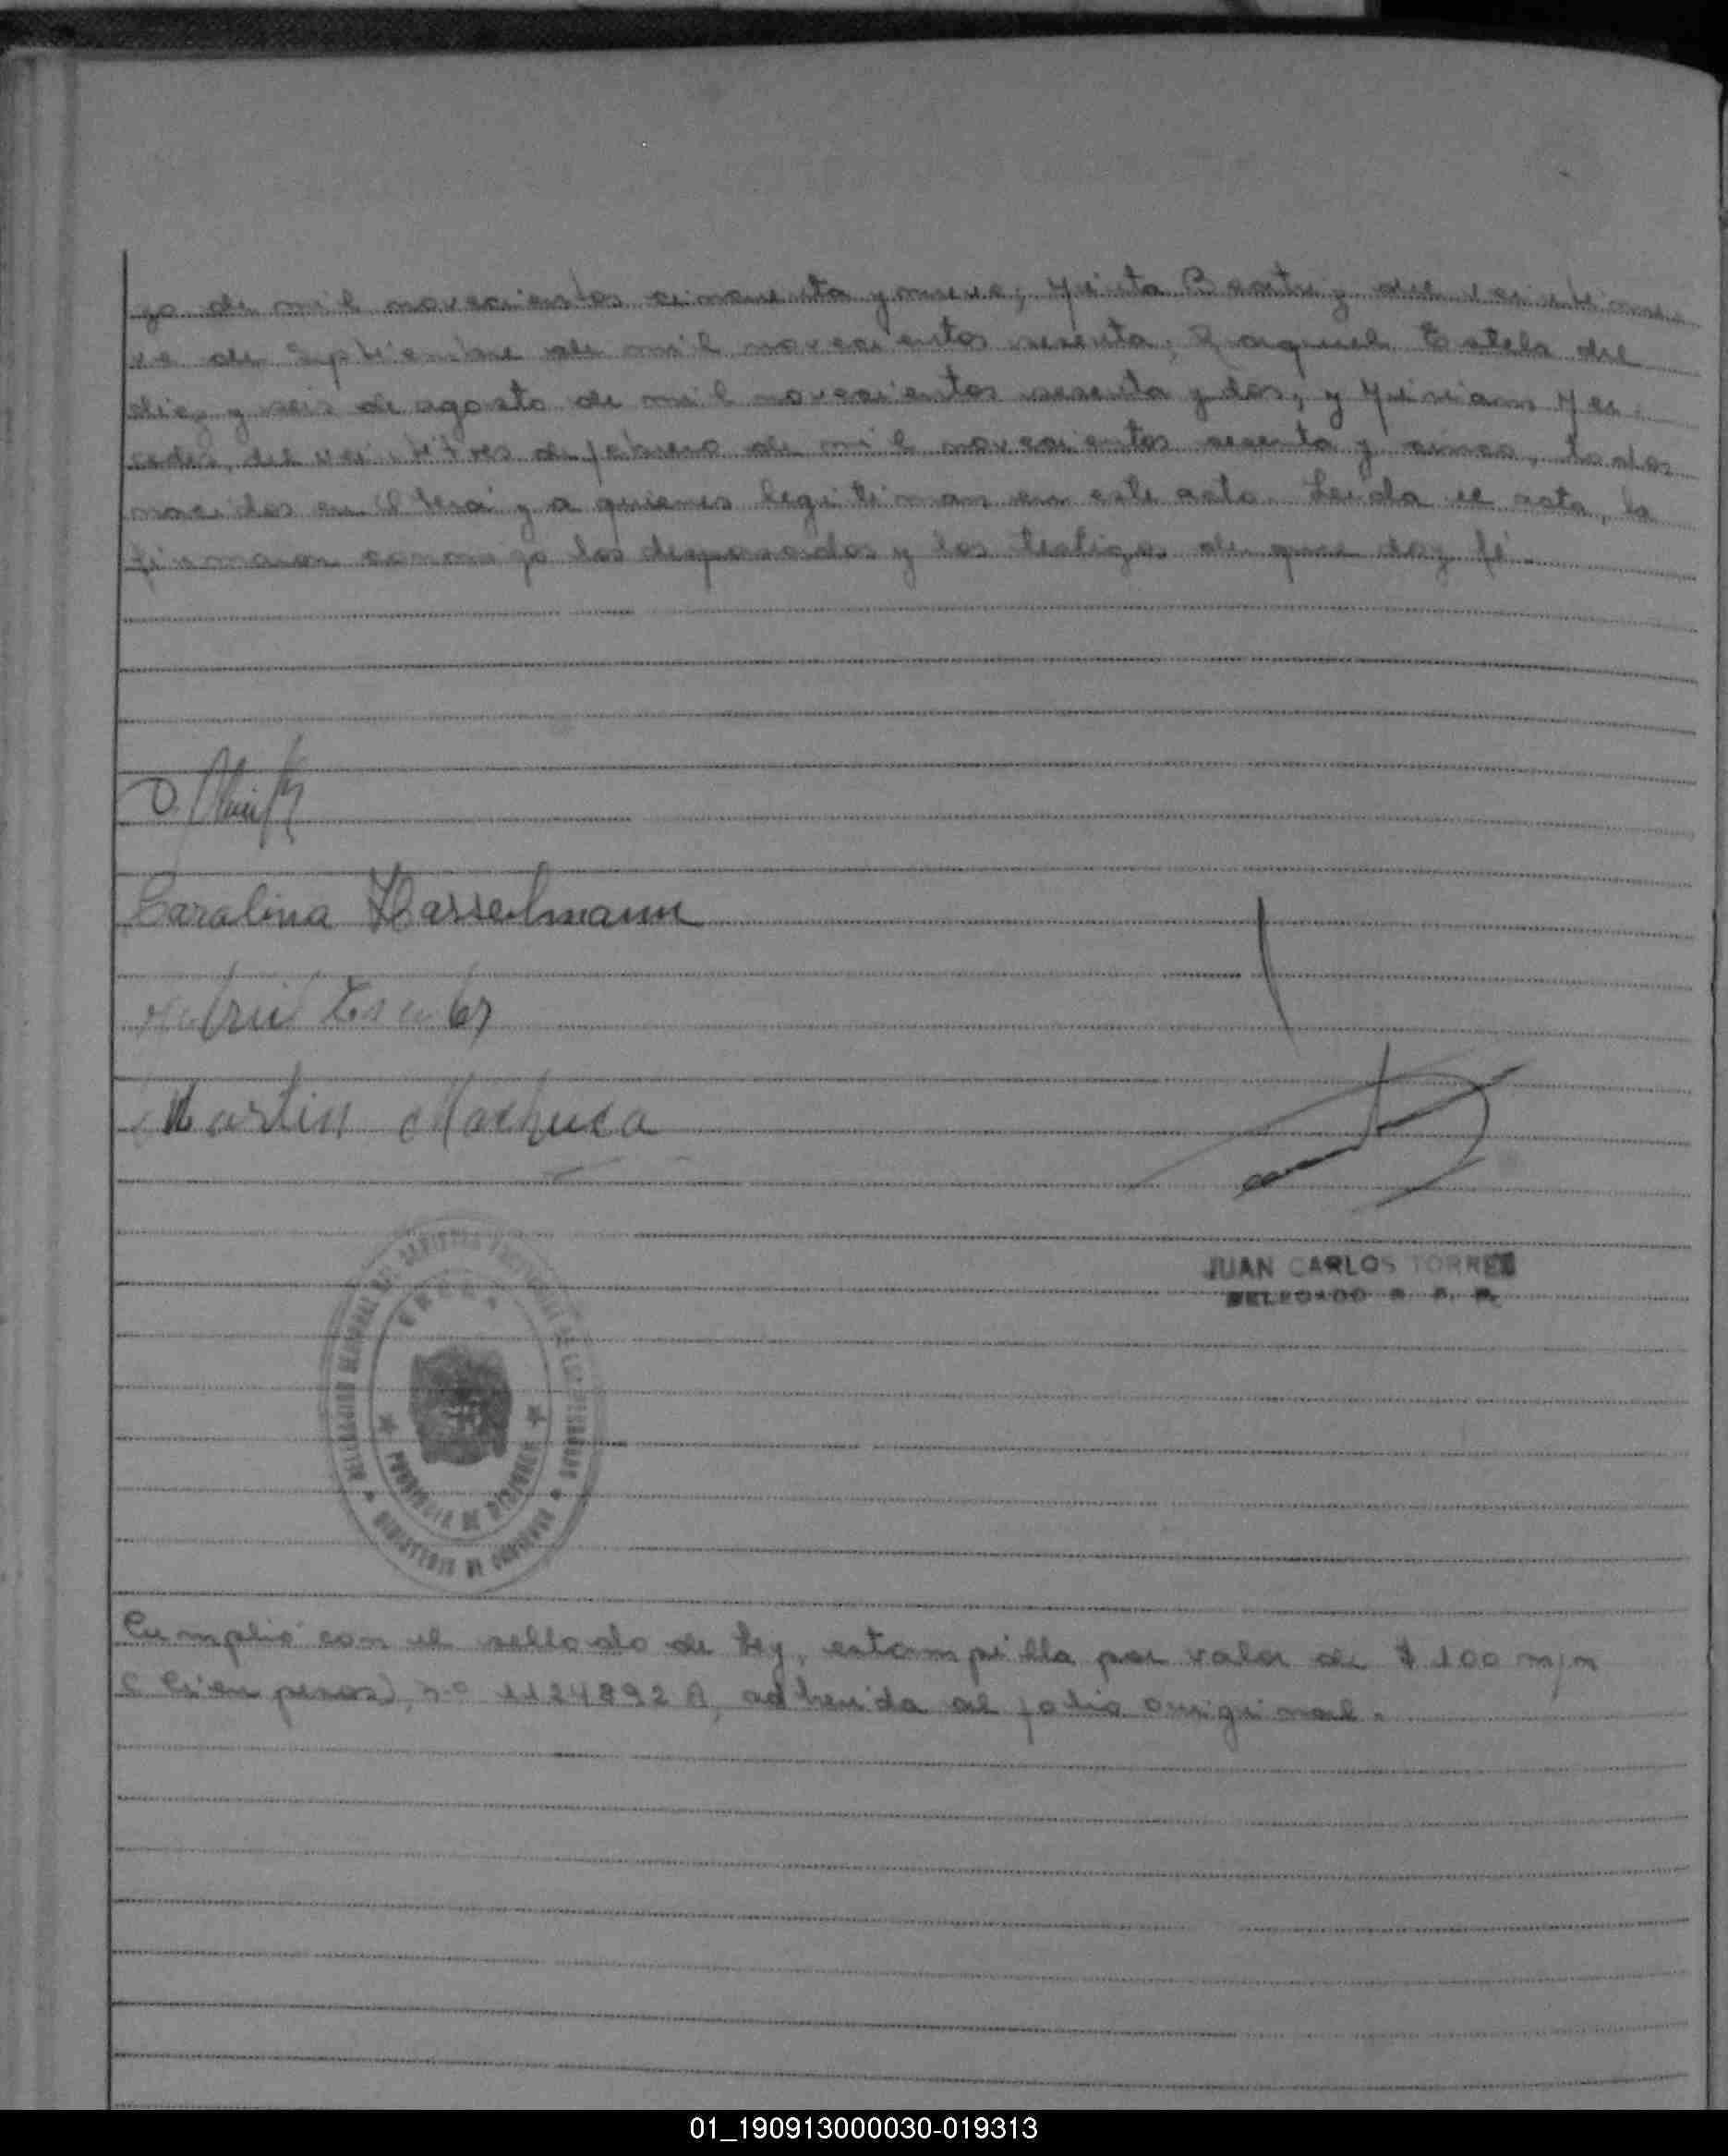 zo de mil novecientos cincuenta y nueve; Mirta Beatriz del veintinue
ve de Septiembre de mil novecientos sesenta; Raquel Estela del
diez y seis de agosto de mil novecientos sesenta y dos; y Miriam Mer-
cedes, del veintitres de febrero de mil novecientos sesenta y cinco, todos
nacidos en Oberá y a quienes legitiman en este acto. Leida el acta, la
firmaron conmigo los desposados y los testigos de que doy fé.
Carolina Hasselmann
Martin Machuca
JUAN CARLOS TORRES
DELEGADO R. P. P.
PROVINCIA DE MISIONES
MINISTERIO DE GOBIERNO
Cumplió con el sellado de ley, estampilla por valor de $ 100 m/n
(Cien pesos), nº 1124892 A, adherida al folio original.
01_190913000030-019313